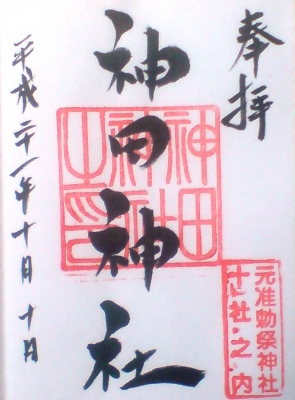 奉拝
元准勅祭神社
十社之内
神田神社
神田
神社
之印
平成二十一年十月十日